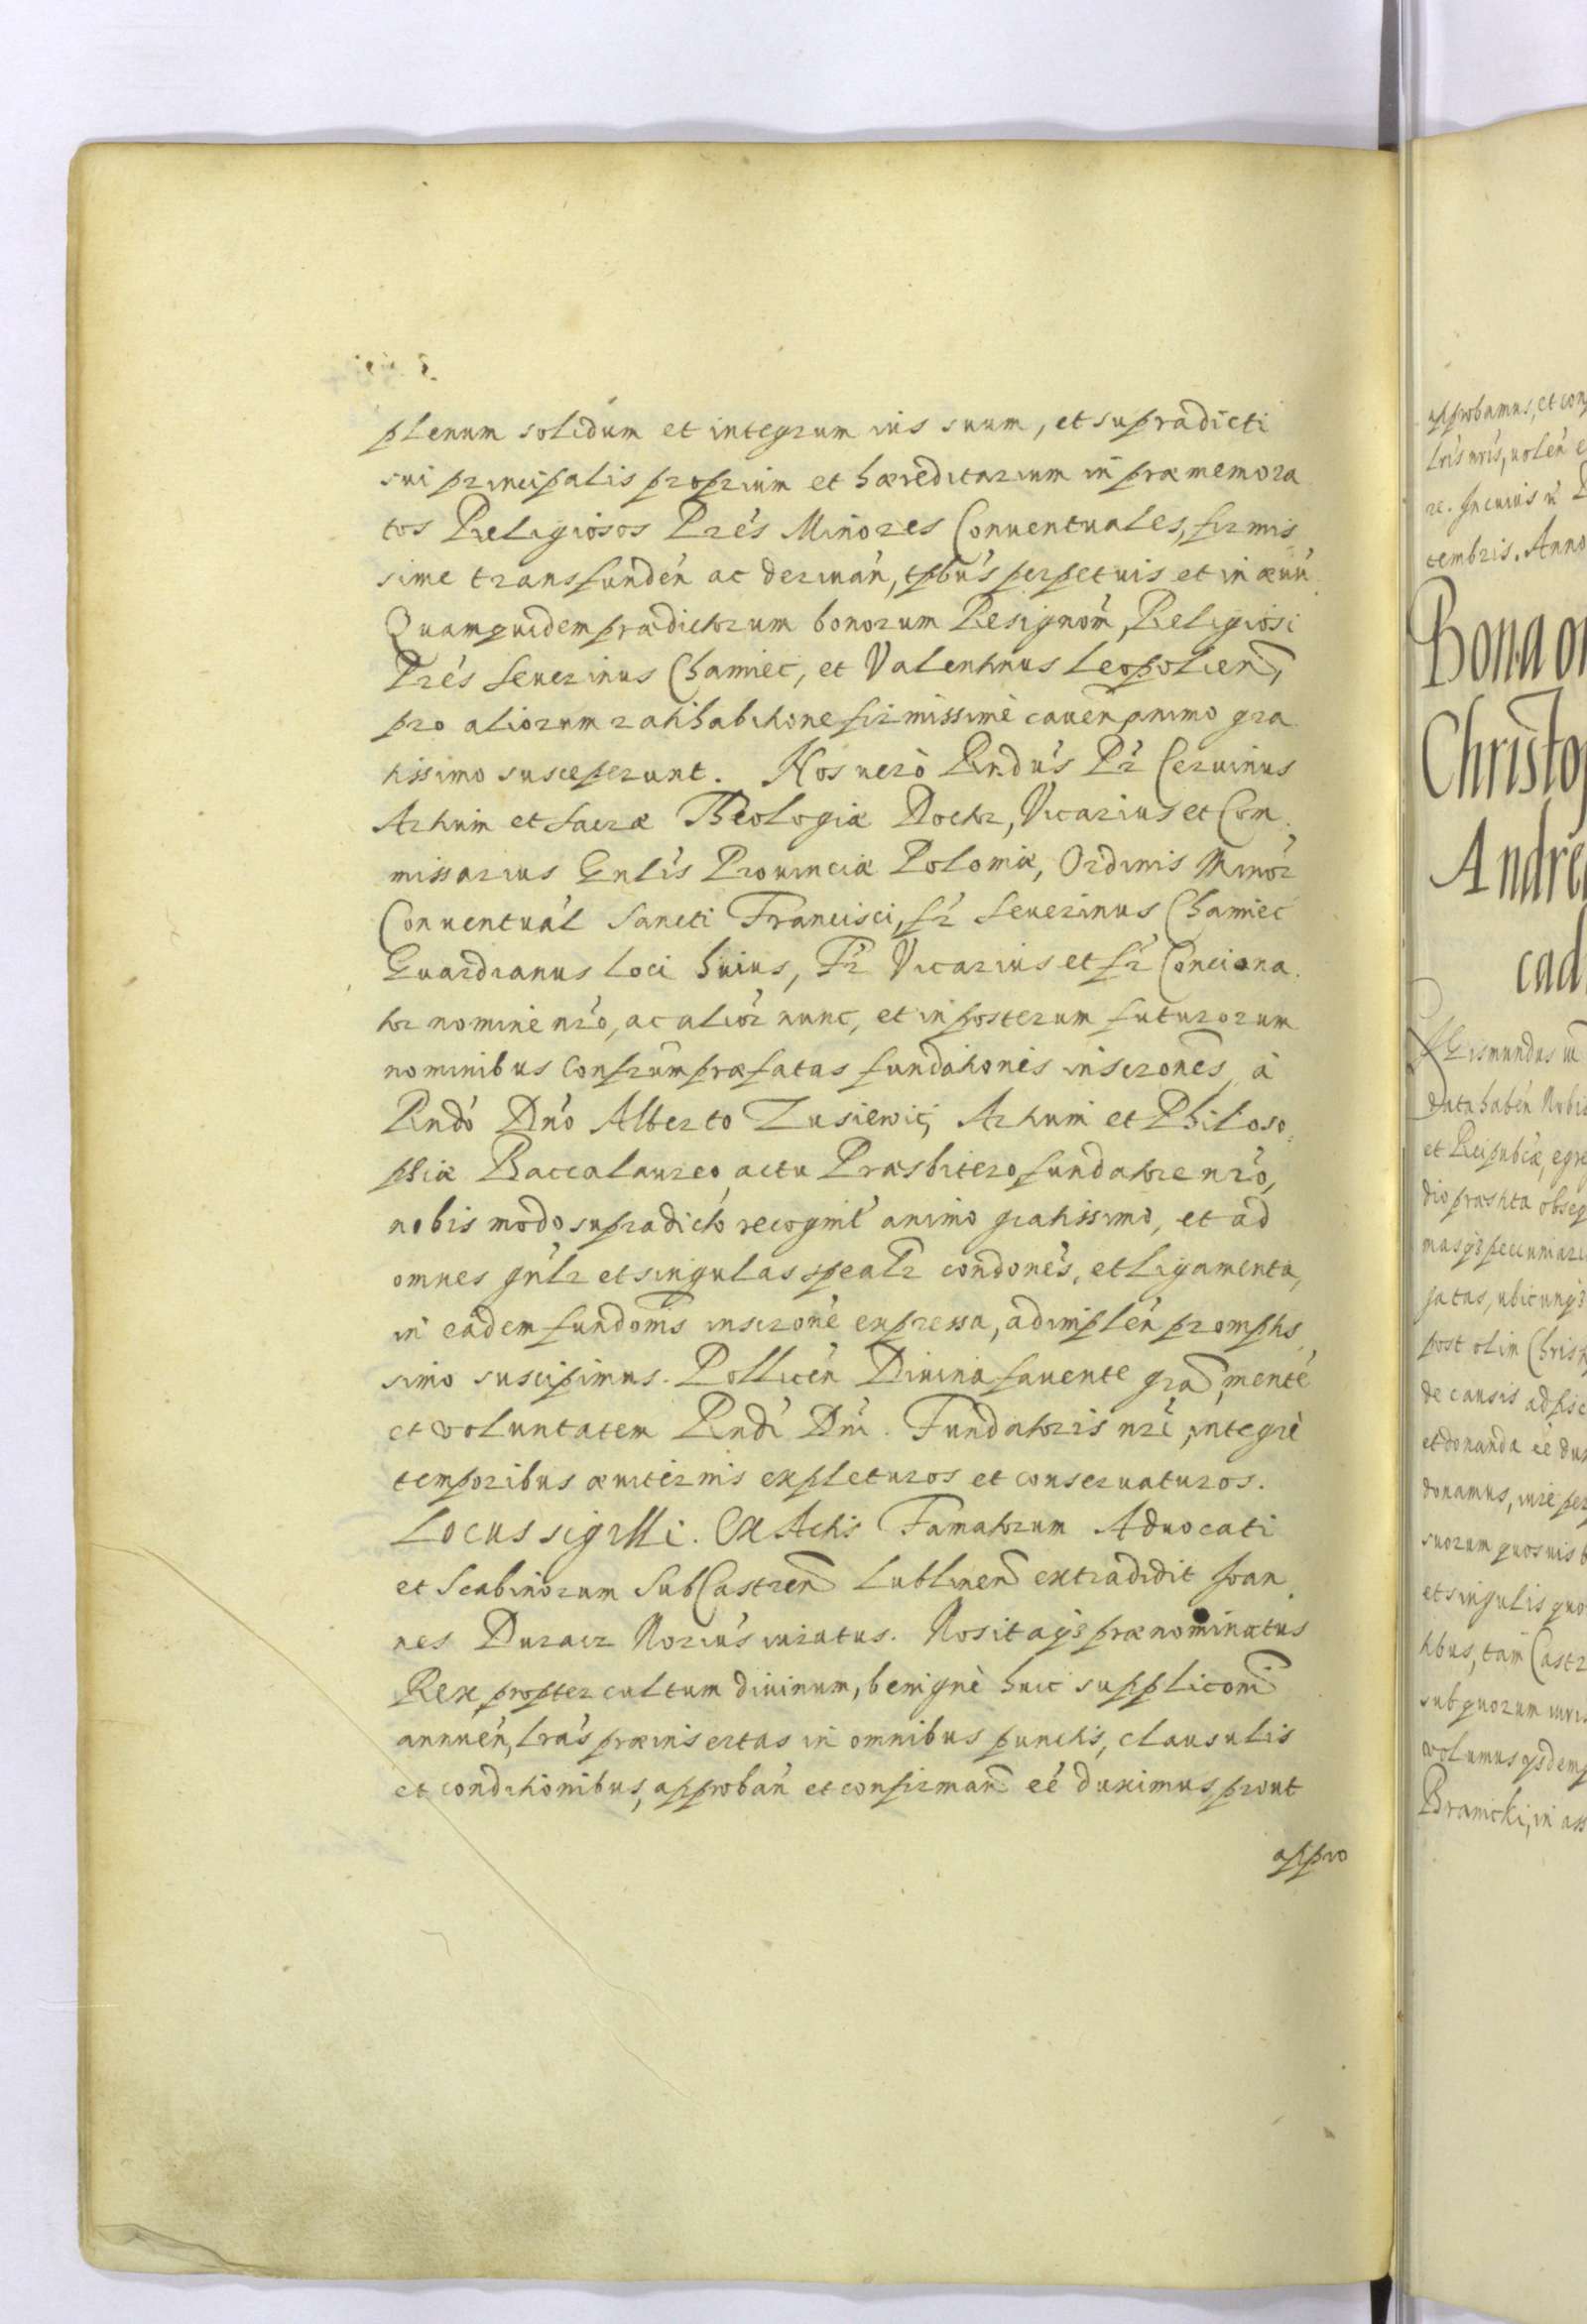 plenum solidum et integrum ius suum, et supradicti
sui principalis proprium et hæreditarium in præmemora
tos Religiosos Prés Minores Conventuales, firmis
sime transfundén ac deriván, tpbús perpetuis et in ævu
Quamquidem prædictorum bonorum Resignom, Religiosi
Prés Severinus Chamiec, et Valentinus Leopolien,
pro aliorum ratihabitione firmissimè caven animo gra
tissimo susceperunt. Nos verò Rndús Pr Cervinus
Artium et Sacræ Theologiæ Doctor, Vicarius et Com
missarius Gnlís Provinciæ Poloniæ, Ordinis Minor
Conventuál Sancti Francisci, fr Severinus Chamiec
Guardianus loci huius, Fr Vicarius et fr Conciona
tor nomine nró, ac alior nunc, et in posterum futurorum
nominibus Confrum præfatas fundationis inscrones, à
Rndó Dnó Alberto Zusiewic, Artium et Philoso
phiæ Baccalaureo, actu Præsbitero, fundatore nró,
nobis modo supradicto recognit animo gratissimo, et ad
omnes gnlr et singulas spealr condonés, et ligamenta,
in eadem fundonis inscroné expressa, adimplén promptis
simo suscipimus. Pollicén Divina favente gra, menté
et voluntatem Rndi Dni. Fundatoris nri, integrè
temporibus æviternis expleturos et conservaturos.
Locus sigilli. Ex Actis Famatorum Advocati
et Scabinorum SubCastren Lublinen extradidit Joan
nes Duracz Noriús iuratus. Nos itaq3 prænominatus
Rex, propter cultum divinum, benignè huic supplicom
annuén, lrás præinsertas in omnibus punctis, clausulis
et conditionibus, approbán et confirman eé duximus, prout
appro
approbamus, et con
lrís nrís, volén e
re. In cuius r
tembris. Anno
Bona or
Christop
Andre
cad
Data habén Nobis
et Reipubcæ, egre
dio præstita obseq
masq3 pecuniar
gatas, ubicunq3
post olim Christ
de causis ad fisc
et donanda eé dux
donamus, iure per
suorum quosvis b
et singulis quo
tibus, tam Castr
sub quorum iuris
volumus qs dem
Branicki, in ass